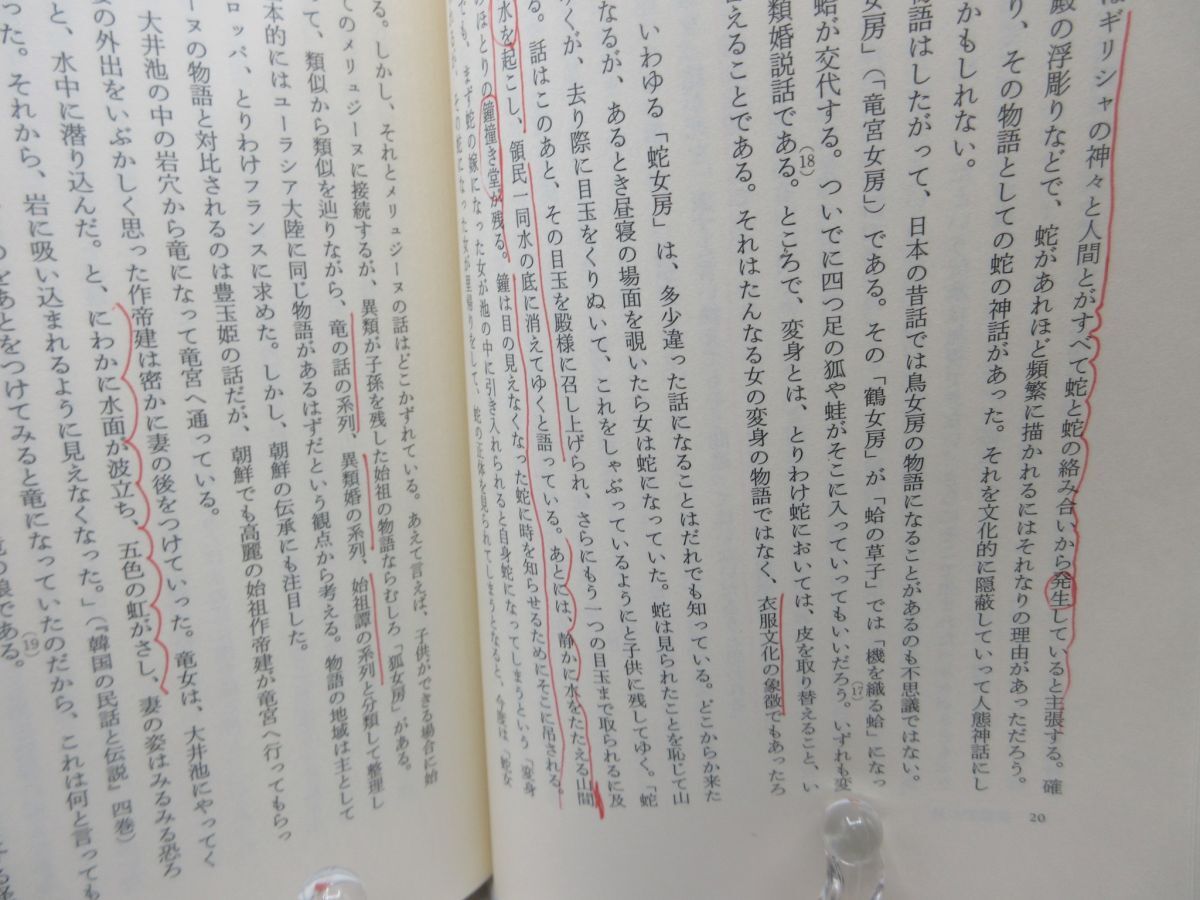 はギリシャの神々と人間とがすべて蛇と蛇の絡み合いから発生していると主張する。確
殿の浮彫りなどで、蛇があれほど頻繁に描かれるにはそれなりの理由があっただろう。
り、その物語としての蛇の神話があった。それを文化的に隠蔽していって人態神話にし
かもしれない。
物語はしたがって、日本の昔話では鳥女房の物語になることがあるのも不思議ではない。
女房」(「竜宮女房」)である。その「鶴女房」が「蛤の草子」では「機を織る蛤」になっ(17)
蛤が交代する。ついでに四つ足の狐や蛙がそこに入っていってもいいだろう。いずれも変
類婚説話である。(18)ところで、変身とは、とりわけ蛇においては、皮を取り替えること、い
言えることである。それはたんなる女の変身の物語ではなく、衣服文化の象徴でもあったろ
いわゆる「蛇女房」は、多少違った話になることはだれでも知っている。どこからか来た
なるが、あるとき昼寝の場面を覗いたら女は蛇になっていた。蛇は見られたことを恥じて山
くが、去り際に目玉をくりぬいて、これをしゃぶっているようにと子供に残してゆく。「蛇
る。話はこのあと、その目玉を殿様に召し上げられ、さらにもう一つの目玉まで取られるに及
水を起こし、領民一同水の底に消えてゆくと語っている。あとには、静かに水をたたえる山間
のほとりの鐘撞き堂が残る。鐘は目の見えなくなった蛇に時を知らせるためにそこに吊される。
でも、まず蛇の嫁になった女が池の中に引き入れられると自身蛇になってしまうという「変身
その蛇になった女が里帰りをして、蛇の正体を見られてしまうとなると、今度は「蛇女
20
る。しかし、それとメリュジーヌの話はどこかずれている。あえて言えば、子供ができる場合に始
てのメリュジーヌに接続するが、異類が子孫を残した始祖の物語ならむしろ「狐女房」がある。
って、類似から類似を辿りながら、竜の話の系列、異類婚の系列、始祖譚の系列と分類して整理し
本的にはユーラシア大陸に同じ物語があるはずだという観点から考える。物語の地域は主として
ロッパ、とりわけフランスに求めた。しかし、朝鮮の伝承にも注目した。
ーヌの物語と対比されるのは豊玉姫の話だが、朝鮮でも高麗の始祖作帝建が竜宮へ行ってもらっ
大井池の中の岩穴から竜になって竜宮へ通っている。
の外出をいぶかしく思った作帝建は密かに妻の後をつけていった。竜女は、大井池にやってく
と、水中に潜り込んだ。と、にわかに水面が波立ち、五色の虹がさし、妻の姿はみるみる恐ろ
った。それから、岩に吸い込まれるように見えなくなった。」(『韓国の民話と伝説』四巻)
のをあとをつけてみると竜になっていたのだから、これは何と言っても
の娘である。(19)